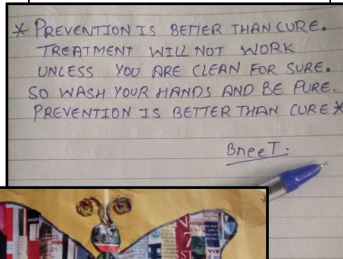 * PREVENTION IS BETTER THAN CURE.
TREATMENT WILL NOT WORK
UNLESS YOU ARE CLEAN FOR SURE.
SO WASH YOUR HANDS AND BE PURE.
PREVENTION IS BETTER THAN CURE *
BneeT.